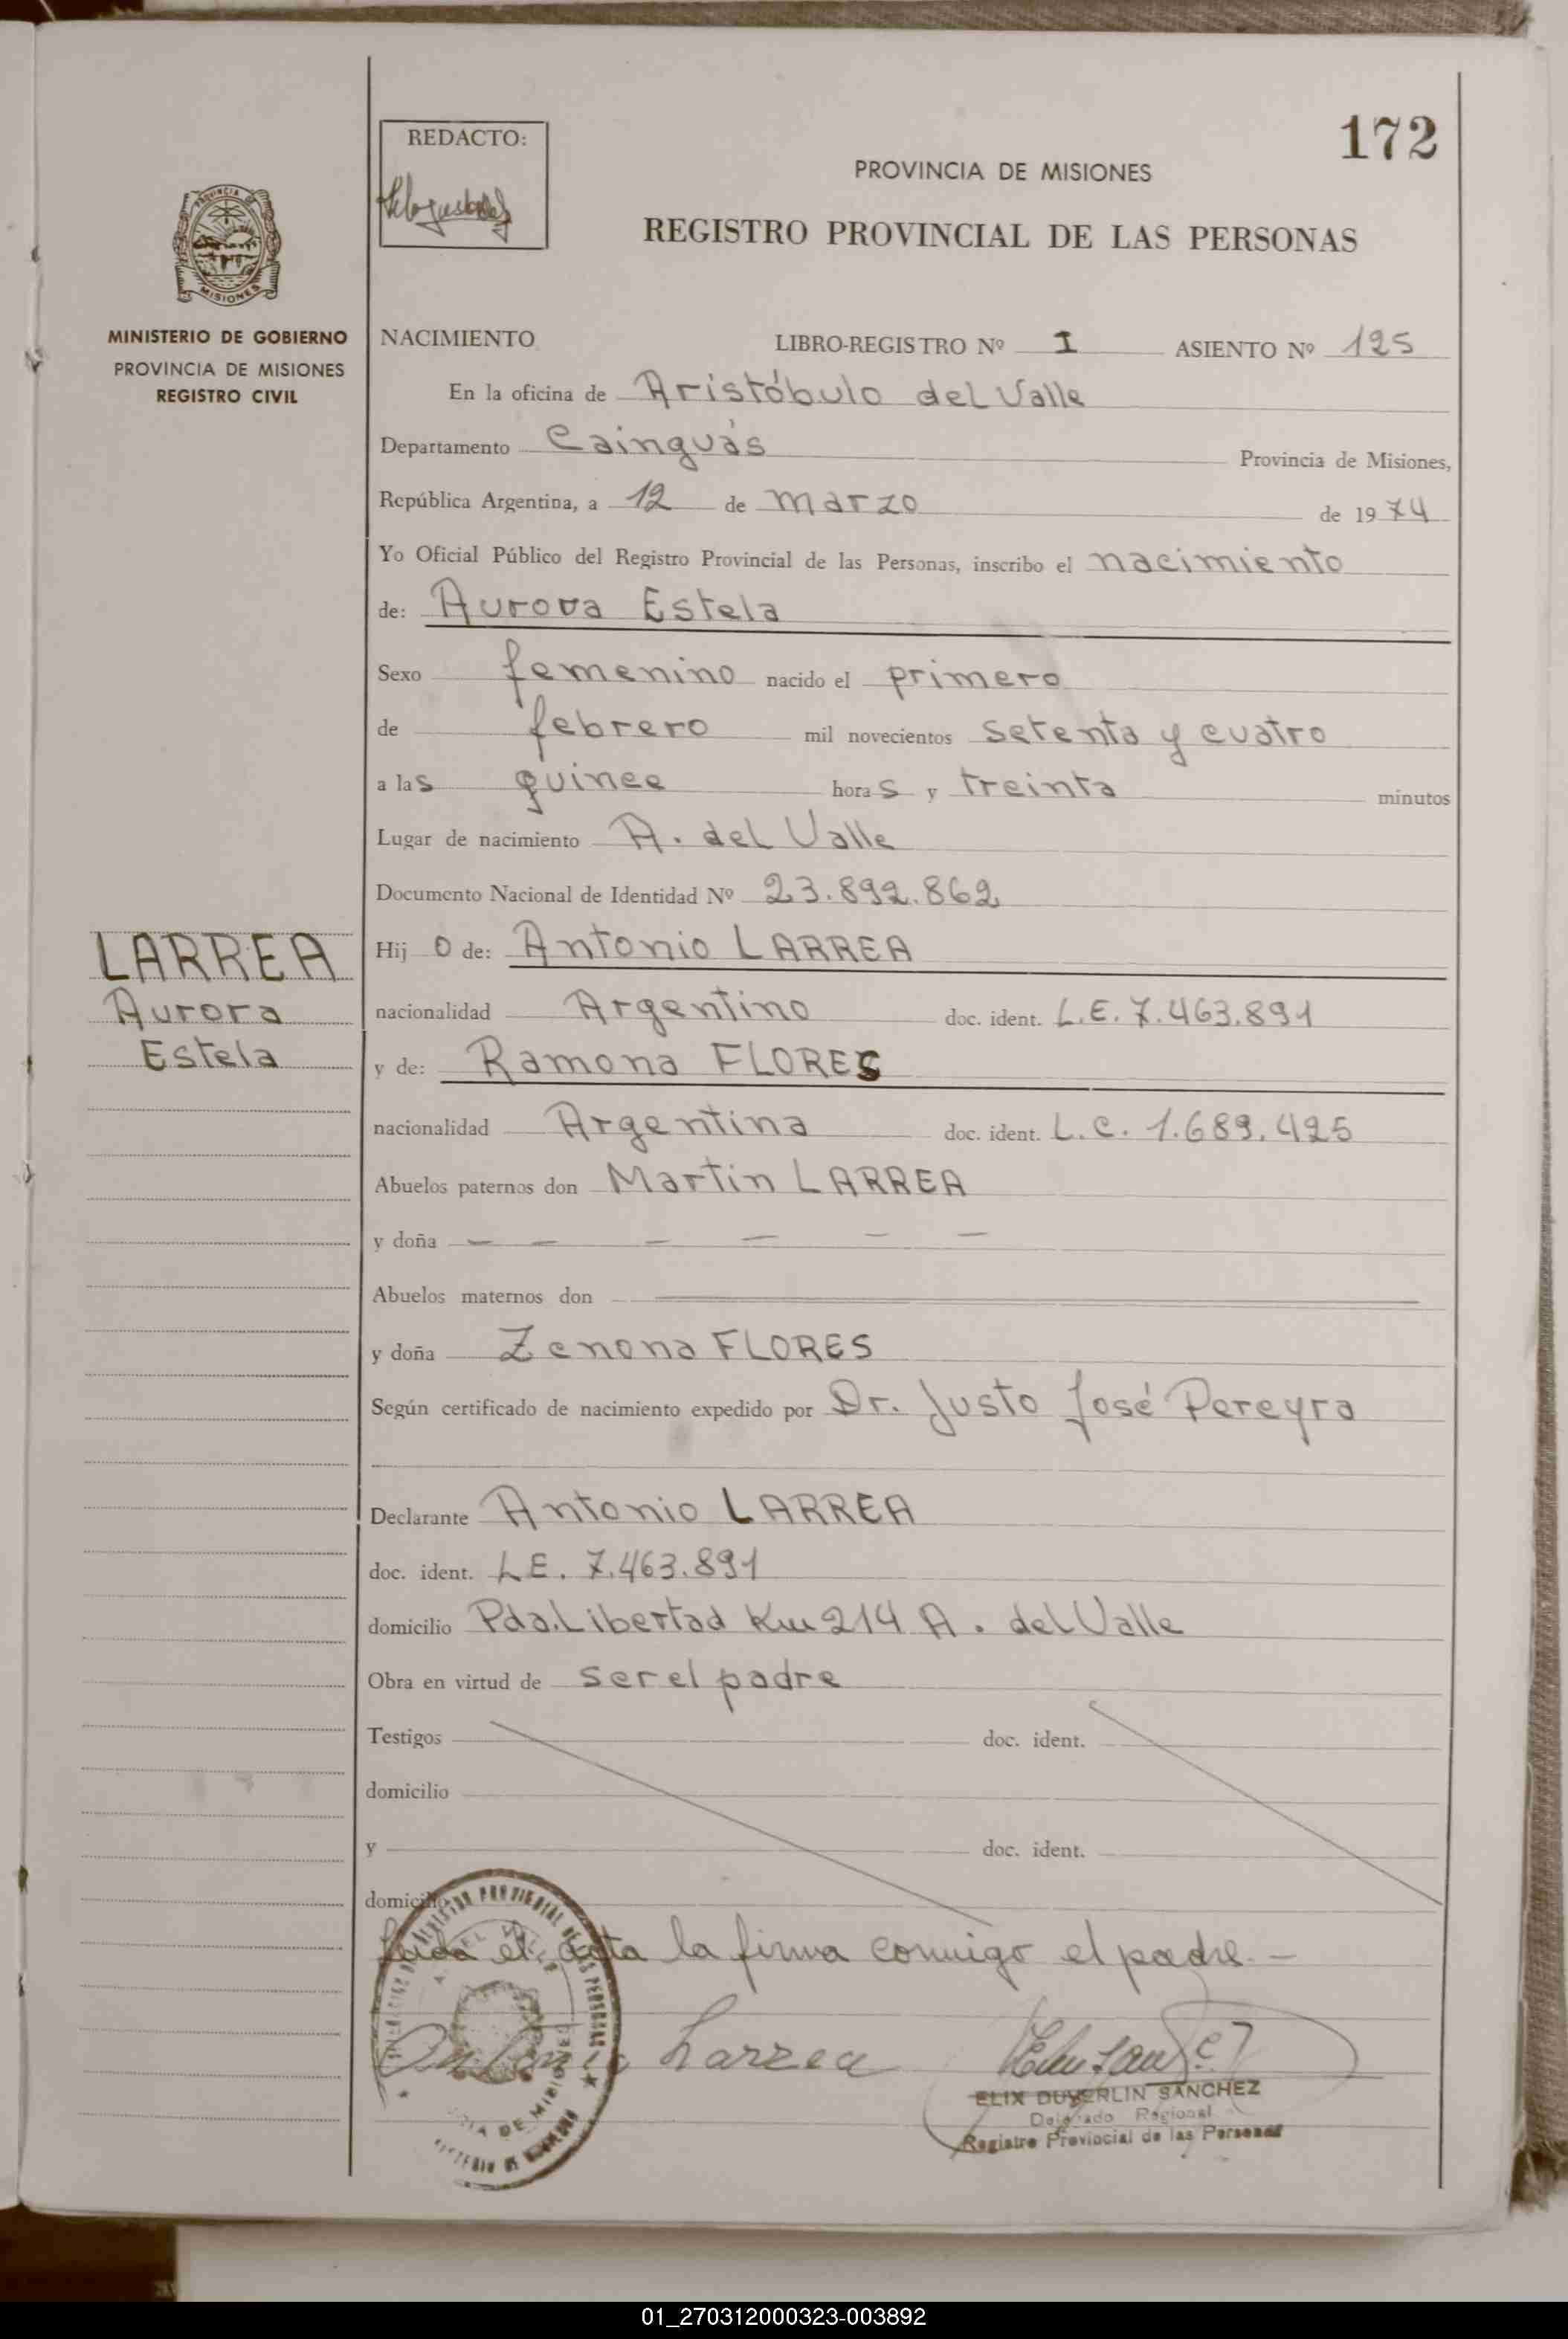 172
REDACTO:
PROVINCIA DE MISIONES
REGISTRO PROVINCIAL DE LAS PERSONAS
PROVINCIA
MISIONES
MINISTERIO DE GOBIERNO
PROVINCIA DE MISIONES
REGISTRO CIVIL
NACIMIENTO LIBRO-REGISTRO Nº I ASIENTO Nº 125
En la oficina de Aristóbulo del Valle
Departamento Cainguás Provincia de Misiones,
República Argentina, a 12 de marzo de 1974
Yo Oficial Público del Registro Provincial de las Personas, inscribo el nacimiento
de: Aurora Estela
Sexo femenino nacido el primero
de febrero mil novecientos setenta y cuatro
a las quince horas y treinta minutos
Lugar de nacimiento A. del Valle
Documento Nacional de Identidad Nº 23.892.862
LARREA
Aurora
Estela
Hijo de: Antonio LARREA
nacionalidad Argentino doc. ident. L.E. 7.463.891
y de: Ramona FLORES
nacionalidad Argentina doc. ident. L.C. 1.689.425
Abuelos paternos don Martin LARREA
y doña — — — — — —
Abuelos maternos don
y doña Zenona FLORES
Según certificado de nacimiento expedido por Dr. Justo José Pereyra
Declarante Antonio LARREA
doc. ident. L.E. 7.463.891
domicilio Pda. Libertad Km 214 A. del Valle
Obra en virtud de ser el padre
Testigos doc. ident.
domicilio
y doc. ident.
domicilio
Leida el acta la firma conmigo el padre. —
Antonio Larrea
ELIX DUVERLIN SANCHEZ
Delegado Regional
Registro Provincial de las Personas
01_270312000323-003892